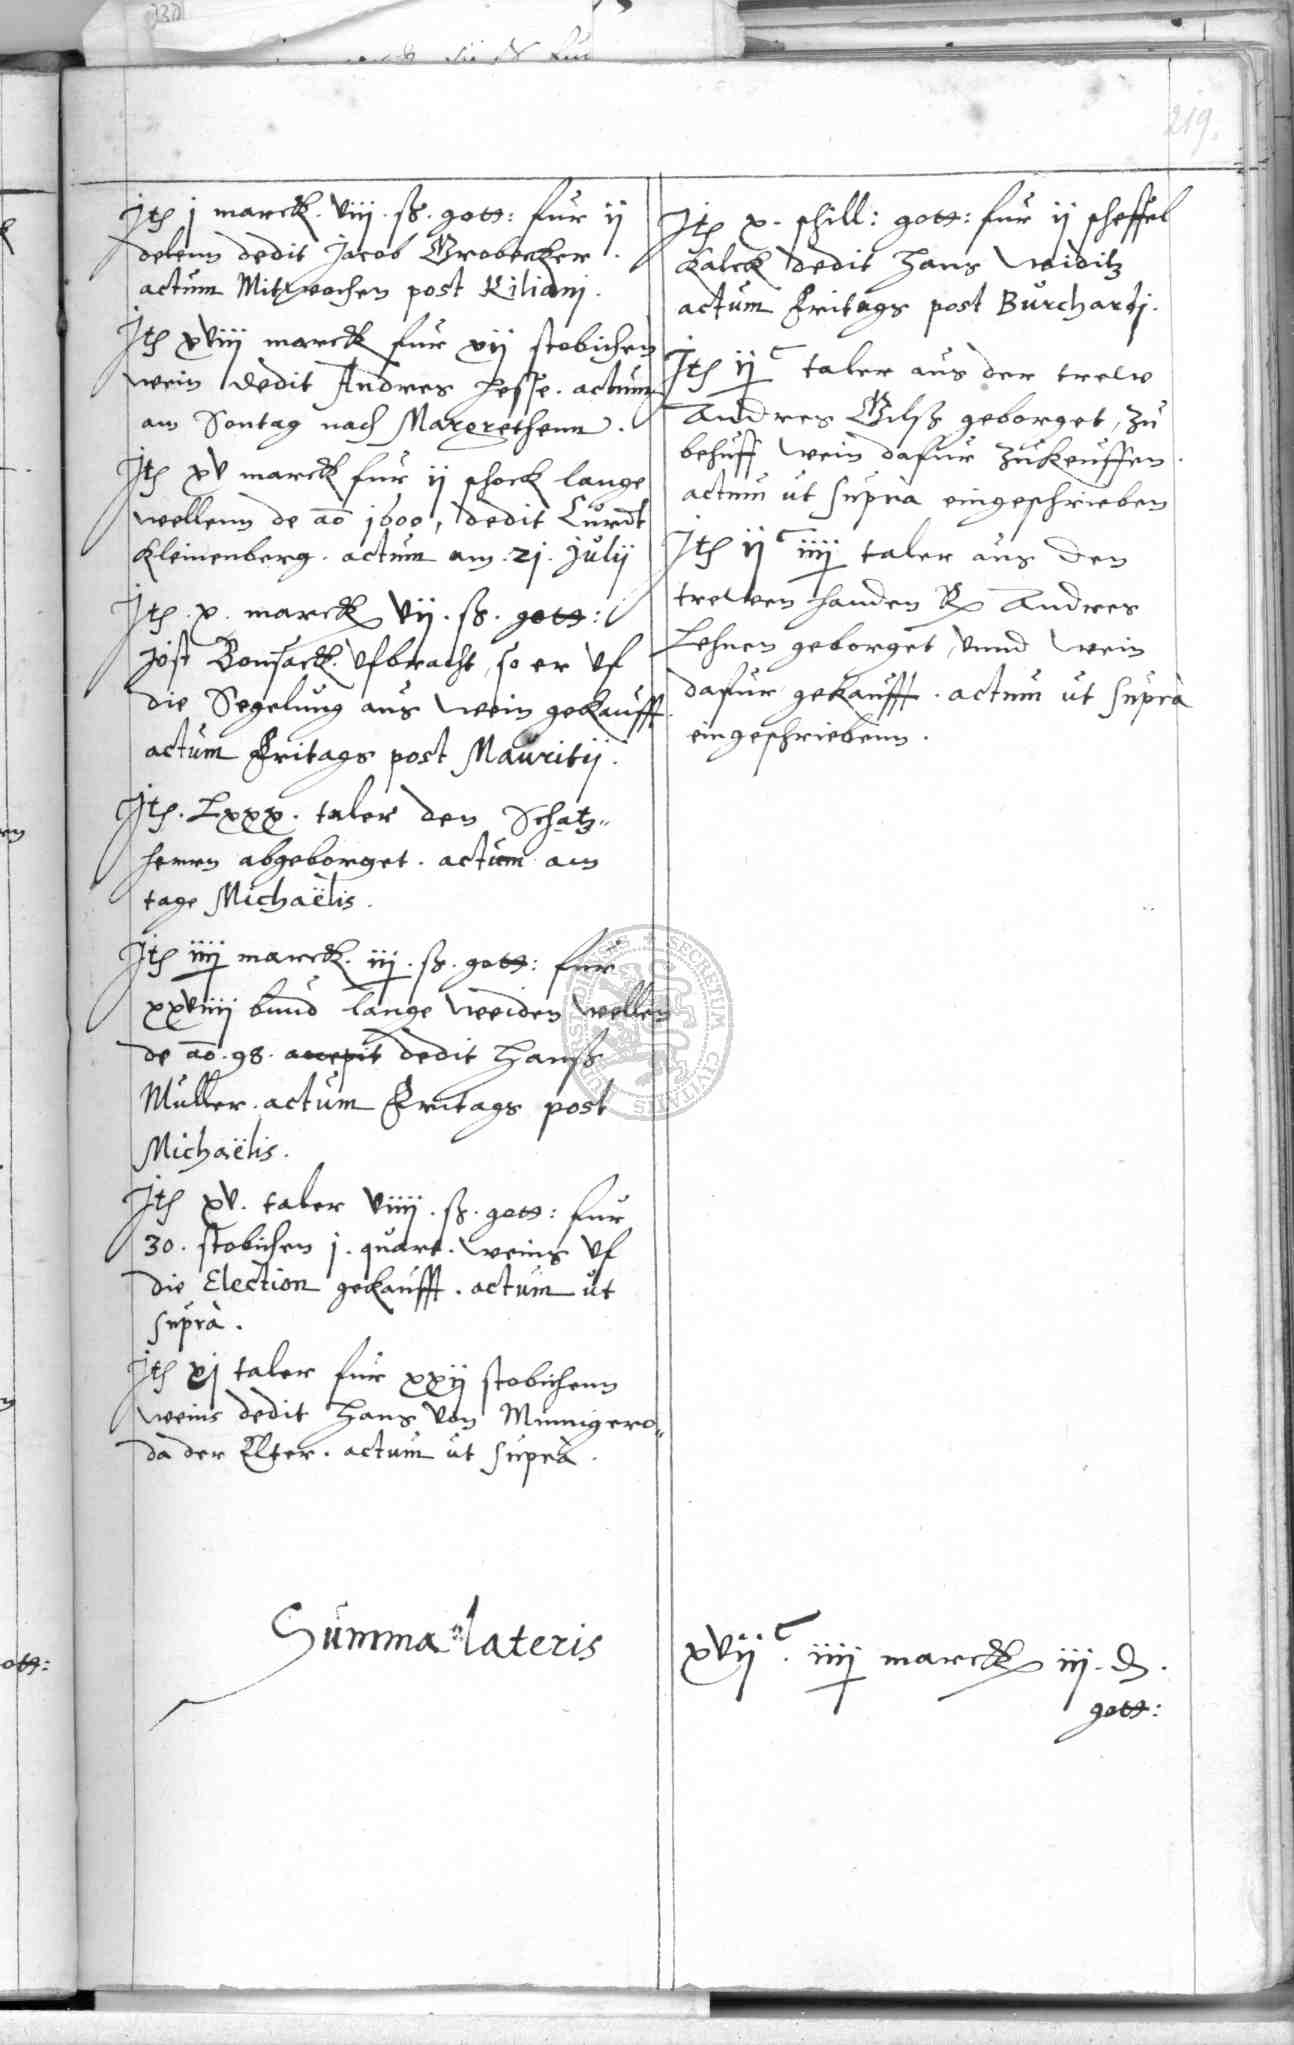 219.
Jtem j marck. viij. ß. gott: fur ij
delenn dedit Jacob Grobecker.
actum Mitwochen post Kiliani.
Jtem xviij marck fur xij stobichen
wein dedit Andres Hesse. actum
am Sontag nach Margrethenn.
Jtem xv marck fur ij schock lange
wellenn de ao 1600, dedit Curdt
Kleinenberg. actum am. 21. Julij
Jtem. x. marck vij. ß. gott:
Jost Bonsack. ufbracht, so er uf
die Segelung aus wein gekaufft.
actum Fritags post Mauritij.
Jtem. Lxxx. taler den Schatz-
herrn abgeborget. actum am
tage Michaëlis.
Jtem iiij marck. iij. ß. gott: fur
xxviiij bund lange weiden wellen
de ao. 98. accepit dedit Hanß
Muller. actum Fritags post
Michaëlis.
Jtem xv. taler viiij. ß. gott: fur
30. stobichen j. quart. weins uf
die Election gekaufft. actum ut
suprà.
Jtem xj taler fur xxij stobichenn
weins dedit Hans von Minnigero-
da der Elter. actum ut suprà.
Jtem x. schill: gott: fur ij scheffel
Kalck dedit Hans Weiditz
actum Fritags post Burchardj.
Jtem ij c taler aus der trew
Andres Gilß geborget, zu
behuff wein dafur zukeuffen.
actum ut suprà eingeschrieben
Jtem ij c iiij taler aus den
trewen handen Andres
Lehnen geborget, unnd wein
dafur gekaufft. actum ut suprà
eingeschriebenn.
Summa lateris
xvij c. iiij marck iij. d.
gott:
SECRETUM CIVITATIS